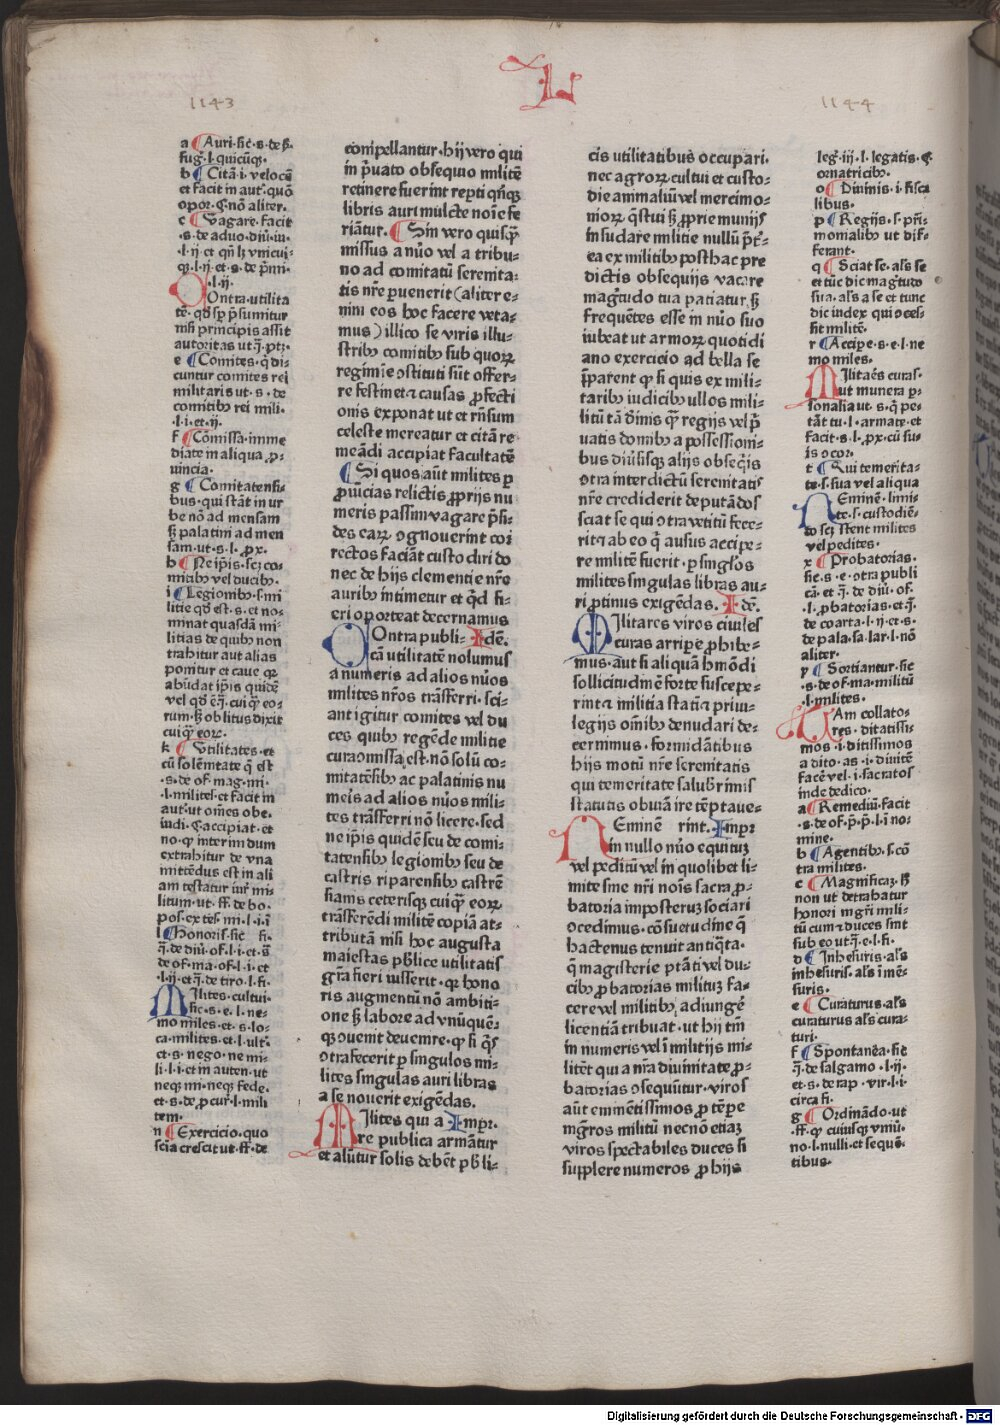 L
1143
1144
a Auri. sic̄. s. de ß.
fug. l. quicūqʒ.
b Citā. i. velocē
et facit in aut. quō
opor. C. nō aliter.
c Vagare. facit
.s. de aduo. diu. iu.
.l. ij.
Ontra utilita
tē. qd sp p̄sumitur
nisi principis assit
autoritas ut q̄. ptʒ.
e Comites. q̄ di
cuntur comites rei
militaris ut. s. de
comitibꝰ rei mili.
.l. i. et. ij.
f Cōmissa. imme
diate in aliqua ꝓ-
uincia.
g Comitatensi
bus. qui stāt in ur
be nō ad mensam
sʒ palatini ad men
sam. ut. s. l. ꝓx.
h Ne ip̄is. scʒ co-
mitibꝰ vel ducibꝰ.
i Legionibꝰ. s. mi
litie qd est. s. et no-
minat quasdā mi-
litias de quibꝰ non
trahitur aut alias
ponitur et caue qꝛ
abūdat ip̄is quidē
rum. sʒ oblitus dixit
cuiq̄ eorꝝ.
k Vtilitates. et
cū solēmtate q̄ est
.s. de of. mag. mi.
.l. milites. et facit in
aut. ut om̄es obe.
iudi. C. accipiat. et
no. qꝛ interim dum
extrahitur de vna
mittēdus est in ali
am testatur iur̄ mi-
litum. ut. ff. de bo.
pos. ex tes. mi. l. i. i
l Honoris. sic̄ si.
q̄. de diu. of. l. i. et. s̄
de of. ma. of. l. i. et
.l. ij. et. q̄. de tiro. l. fi.
Ilites. cultui.
sic. s. e. l. ne-
mo miles. et. s. lo-
ca. milites. et. l. ult̄.
et. s. nego. ne mi-
li. l. i. et in auten. ut
neqʒ mi. neqʒ fede.
et. s. de ꝓcur̄. l. mili
tem.
n Exercicio. quo
scia crescit ut. ff. de
compellantur. hij vero qui
in p̄uato obsequo militē
retinere fuerint rep̄ti qn̄qʒ
libris auri mulcte noīe fe
riātur. Sin vero quisq̄
missus a nūo vel a tribu-
no ad comitatū serenita-
tis nr̄e puenerit (aliter e-
nim eos hoc facere veta-
mus) illico se viris illu-
stribꝰ comitibꝰ sub quoꝝ
regimīe ɔstituti sūt offer-
re festinet ⁊ causas ꝓfecti
onis exponat ut et rn̄sum
celeste mereatur et citā re
meādi accipiat facultatē
Si quos aūt milites p
ꝓuīcias relictis ꝓprijs nu
meris passim vagare p̄si-
des earꝝ ɔgnouerint cor
rectos faciāt custodiri do
nec de hijs clementie nr̄e
auribꝰ intimetur et qd fi-
eri oporteat decernamus
Ontra publi- Idē.
cā utilitatē nolumus
a numeris ad alios nūos
milites nr̄os trāsferri. sci-
ant igitur comites vel du
ces quibꝰ regēde militie
cura ɔmissa est. nō solū co-
mitatēsibꝰ ac palatinis nu
meris ad alios nūos mili-
tes trāsferri nō licere. sed
ne ip̄is quidē seu de comi-
tatensibꝰ legionibꝰ seu de
castris riparensibꝰ castrē
sianis ceterisqʒ cuiq̄ eoꝝ
trāsferēdi militē copiā at-
tributā nisi hoc augusta
maiestas pb̄lice utilitatis
gr̄a fieri iusserit. qꝛ hono
ris augmentū nō ambiti-
one sʒ labore ad vnūquēqʒ
ɔuenit deuenire. qꝛ si q̄s
ɔtra fecerit p singulos mi-
lites singulas auri libras
a se nouerit exigēdas.
Ilites qui a Impr̄.
re publica armātur
et alūtur solis debēt pb̄li-
cis utilitatibus occupari.
nec agroꝝ cultui et custo-
die animaliū vel mercimo-
nioꝝ q̄stui sʒ ꝓprie munijs
insudare militie nullū p̄t-
ea ex militibꝰ posthac pre
dictis obsequijs vacare
maḡtudo tua patiatur. sʒ
frequētes esse in nūo suo
iubeat ut armoꝝ quotidi
ano exercicio ad bella se
p̄parent qꝛ si quis ex mili-
taribꝰ iudicibꝰ ullos mili-
litū tā dīnis q̄ regijs vel p̄
uatis domibꝰ a possessioni-
bus diūsisqʒ alijs obseq̄is
ɔtra interdictū serenitatis
nr̄e crediderit deputādos
sciat se qui ɔtra vetitū fece-
rit ⁊ ab eo q̄ ausus accipe-
re militē fuerit. p singlos
milites singulas libras au-
ri ꝓtinus exigēdas. Idē.
Ilitares viros ciuiles
curas arripe ꝓhibe-
mus. aut si aliquā hmōdi
sollicitudinē forte suscepe-
rint ⁊ militia stati ⁊ priui-
legijs om̄ibꝰ denudari de-
cernimus. formidātibus
hijs motū nr̄e serenitatis
qui temeritate salubrimis
statutis obuiā ire tēptaue-
Eminē rint. Impr̄
in nullo nūo equituʒ
vel peditū vel in quolibet li-
mite sine nr̄i noīs sacra ꝓ-
batoria imposteruʒ sociari
ɔcedimus. ɔsuetudine q̄
hactenus tenuit antiq̄ta.
q̄ magisterie p̄tāti vel du-
cibꝰ ꝓbatorias milituʒ fa-
cere vel militibꝰ adiungē
licentiā tribuat. ut hij tm̄
in numeris vel ī militijs mi-
litēt qui a nr̄a diuinitate ꝓ-
batorias ɔsequūtur. viros
aūt eminētissimos ꝓ tēpe
mgr̄os militū necnō etiaʒ
viros spectabiles duces si
supplere numeros ꝓ hijs
leg. iij. l. legatis. C.
ornatricibꝰ.
o Diuinis. i. fisca
libus.
p Regijs. s. p̄ri-
monialibꝰ ut dif-
ferant.
q Sciat se. als̄ se
et tūc dic maḡtudo
sua. als̄ a se et tunc
dic iudex qui ɔces-
sit militē.
r Accipe. s. e. l. ne
mo miles.
Ilitaēs curas.
ut munera p-
sonalia ut. s. q̄ pe-
tāt tu. l. armate. et
facit. s. l. ꝓx. cū su-
is ɔcor.
t Qui temerita-
te. s. sua vel aliqua
Eminē. limi-
te. s. custodiē-
do scʒ stent milites
vel pedites.
x Probatorias.
sic. s. e. ɔtra publi
cā. et. q̄. de diū. of.
.l. ꝓbatorias. et. q̄.
de coarta. l. ij. et. s.
de pala. sa. lar. l. nō
aliter.
y Sortiantur. sic
.s. de of. ma. militū
.l. milites.
Am collato-
res. ditatissi-
mos. i. ditissimos
a dito. as. i. diuitē
facē vel. i. sacratos
inde dedico.
a Remediū. facit
.s. de of. p̄. p̄. l. i. no-
mine.
b Agentibꝰ. s. cō
tra milites.
c Magnificaʒ. sʒ
non ut detrahatur
honori mgr̄i mili-
tū cum ⁊ duces sint
sub eo ut q̄. e. l. fi.
d Inhesuris. als̄
inhesuris. als̄ īmē-
suris.
e Curaturus. als̄
curaturus als̄ cura-
turi.
f Spontanea. sic̄
q̄. de salgamo. l. ij.
et. s. de rap. vir. l. i.
circa fi.
g Ordināndo. ut
.ff. qꝛ cuiusqʒ vniū.
no. l. nulli. et sequē.
tibus.
Digitalisierung gefördert durch die Deutsche Forschungsgemeinschaft - DFG